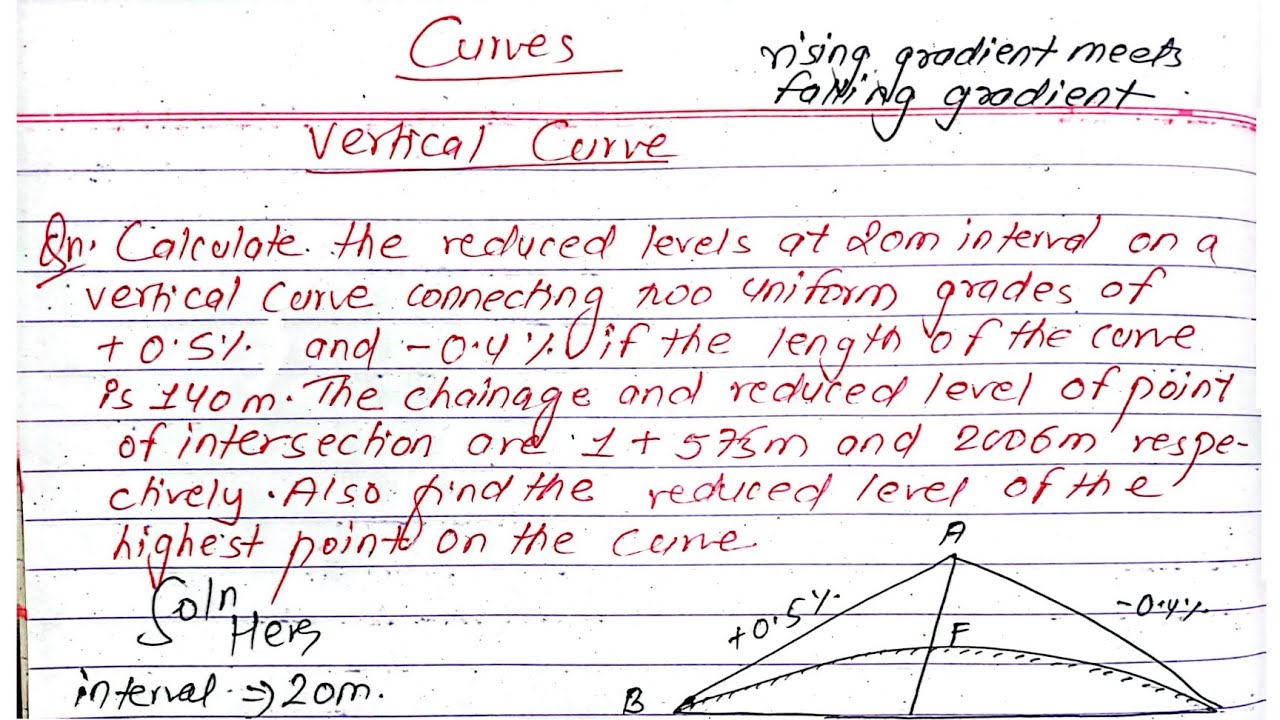 Curves
rising gradient meets
falling gradient
Vertical Curve
Qn. Calculate the reduced levels at 20m interval on a
vertical curve connecting two uniform grades of
+0.5% and -0.4% if the length of the curve
is 140m. The chainage and reduced level of point
of intersection are 1+575m and 2006m respe-
ctively. Also find the reduced level of the
highest point on the curve.
Soln
Here
interval ⇒ 20m.
A
+0.5%
-0.4%
F
B